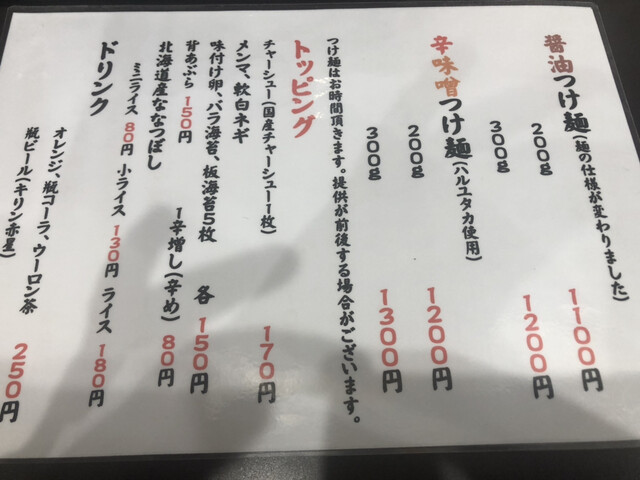 醤油つけ麺(麺の仕様が変わりました)
200g 1100円
300g 1200円
辛味噌つけ麺(ハルユタカ使用)
200g 1200円
300g 1300円
つけ麺はお時間頂きます。提供が前後する場合がございます。
トッピング
チャーシュー(国産チャーシュー1枚) 170円
メンマ、軟白ネギ
味付け卵、バラ海苔、板海苔5枚 各 150円
背あぶら 150円 1辛増し(辛め) 80円
北海道産ななつぼし
ミニライス 80円 小ライス 130円 ライス 180円
ドリンク
オレンジ、瓶コーラ、ウーロン茶 250円
瓶ビール(キリン赤星)